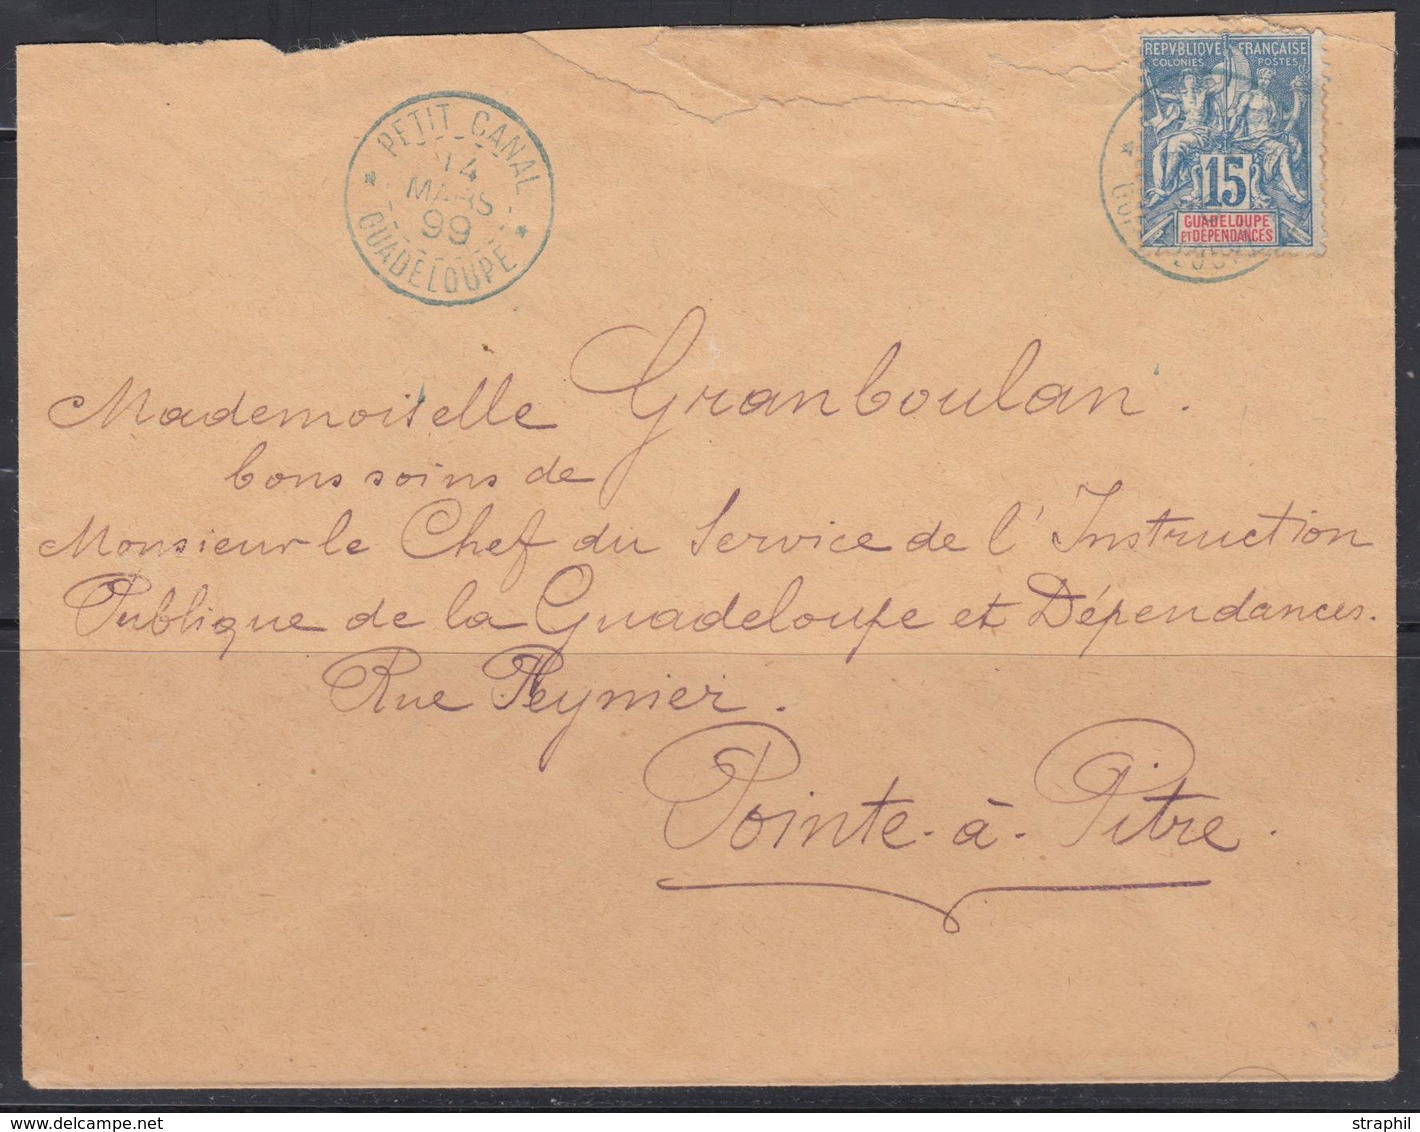 REPVBLIQVE FRANÇAISE
COLONIES POSTES
15
GUADELOUPE
ET DÉPENDANCES
PETIT CANAL
14
MARS
99
GUADELOUPE
Mademoiselle Granboulan.
bons soins de
Monsieur le Chef du Service de l'Instruction
Publique de la Guadeloupe et Dépendances.
Rue Peynier.
Pointe-à-Pitre.
www.delcampe.net
straphil